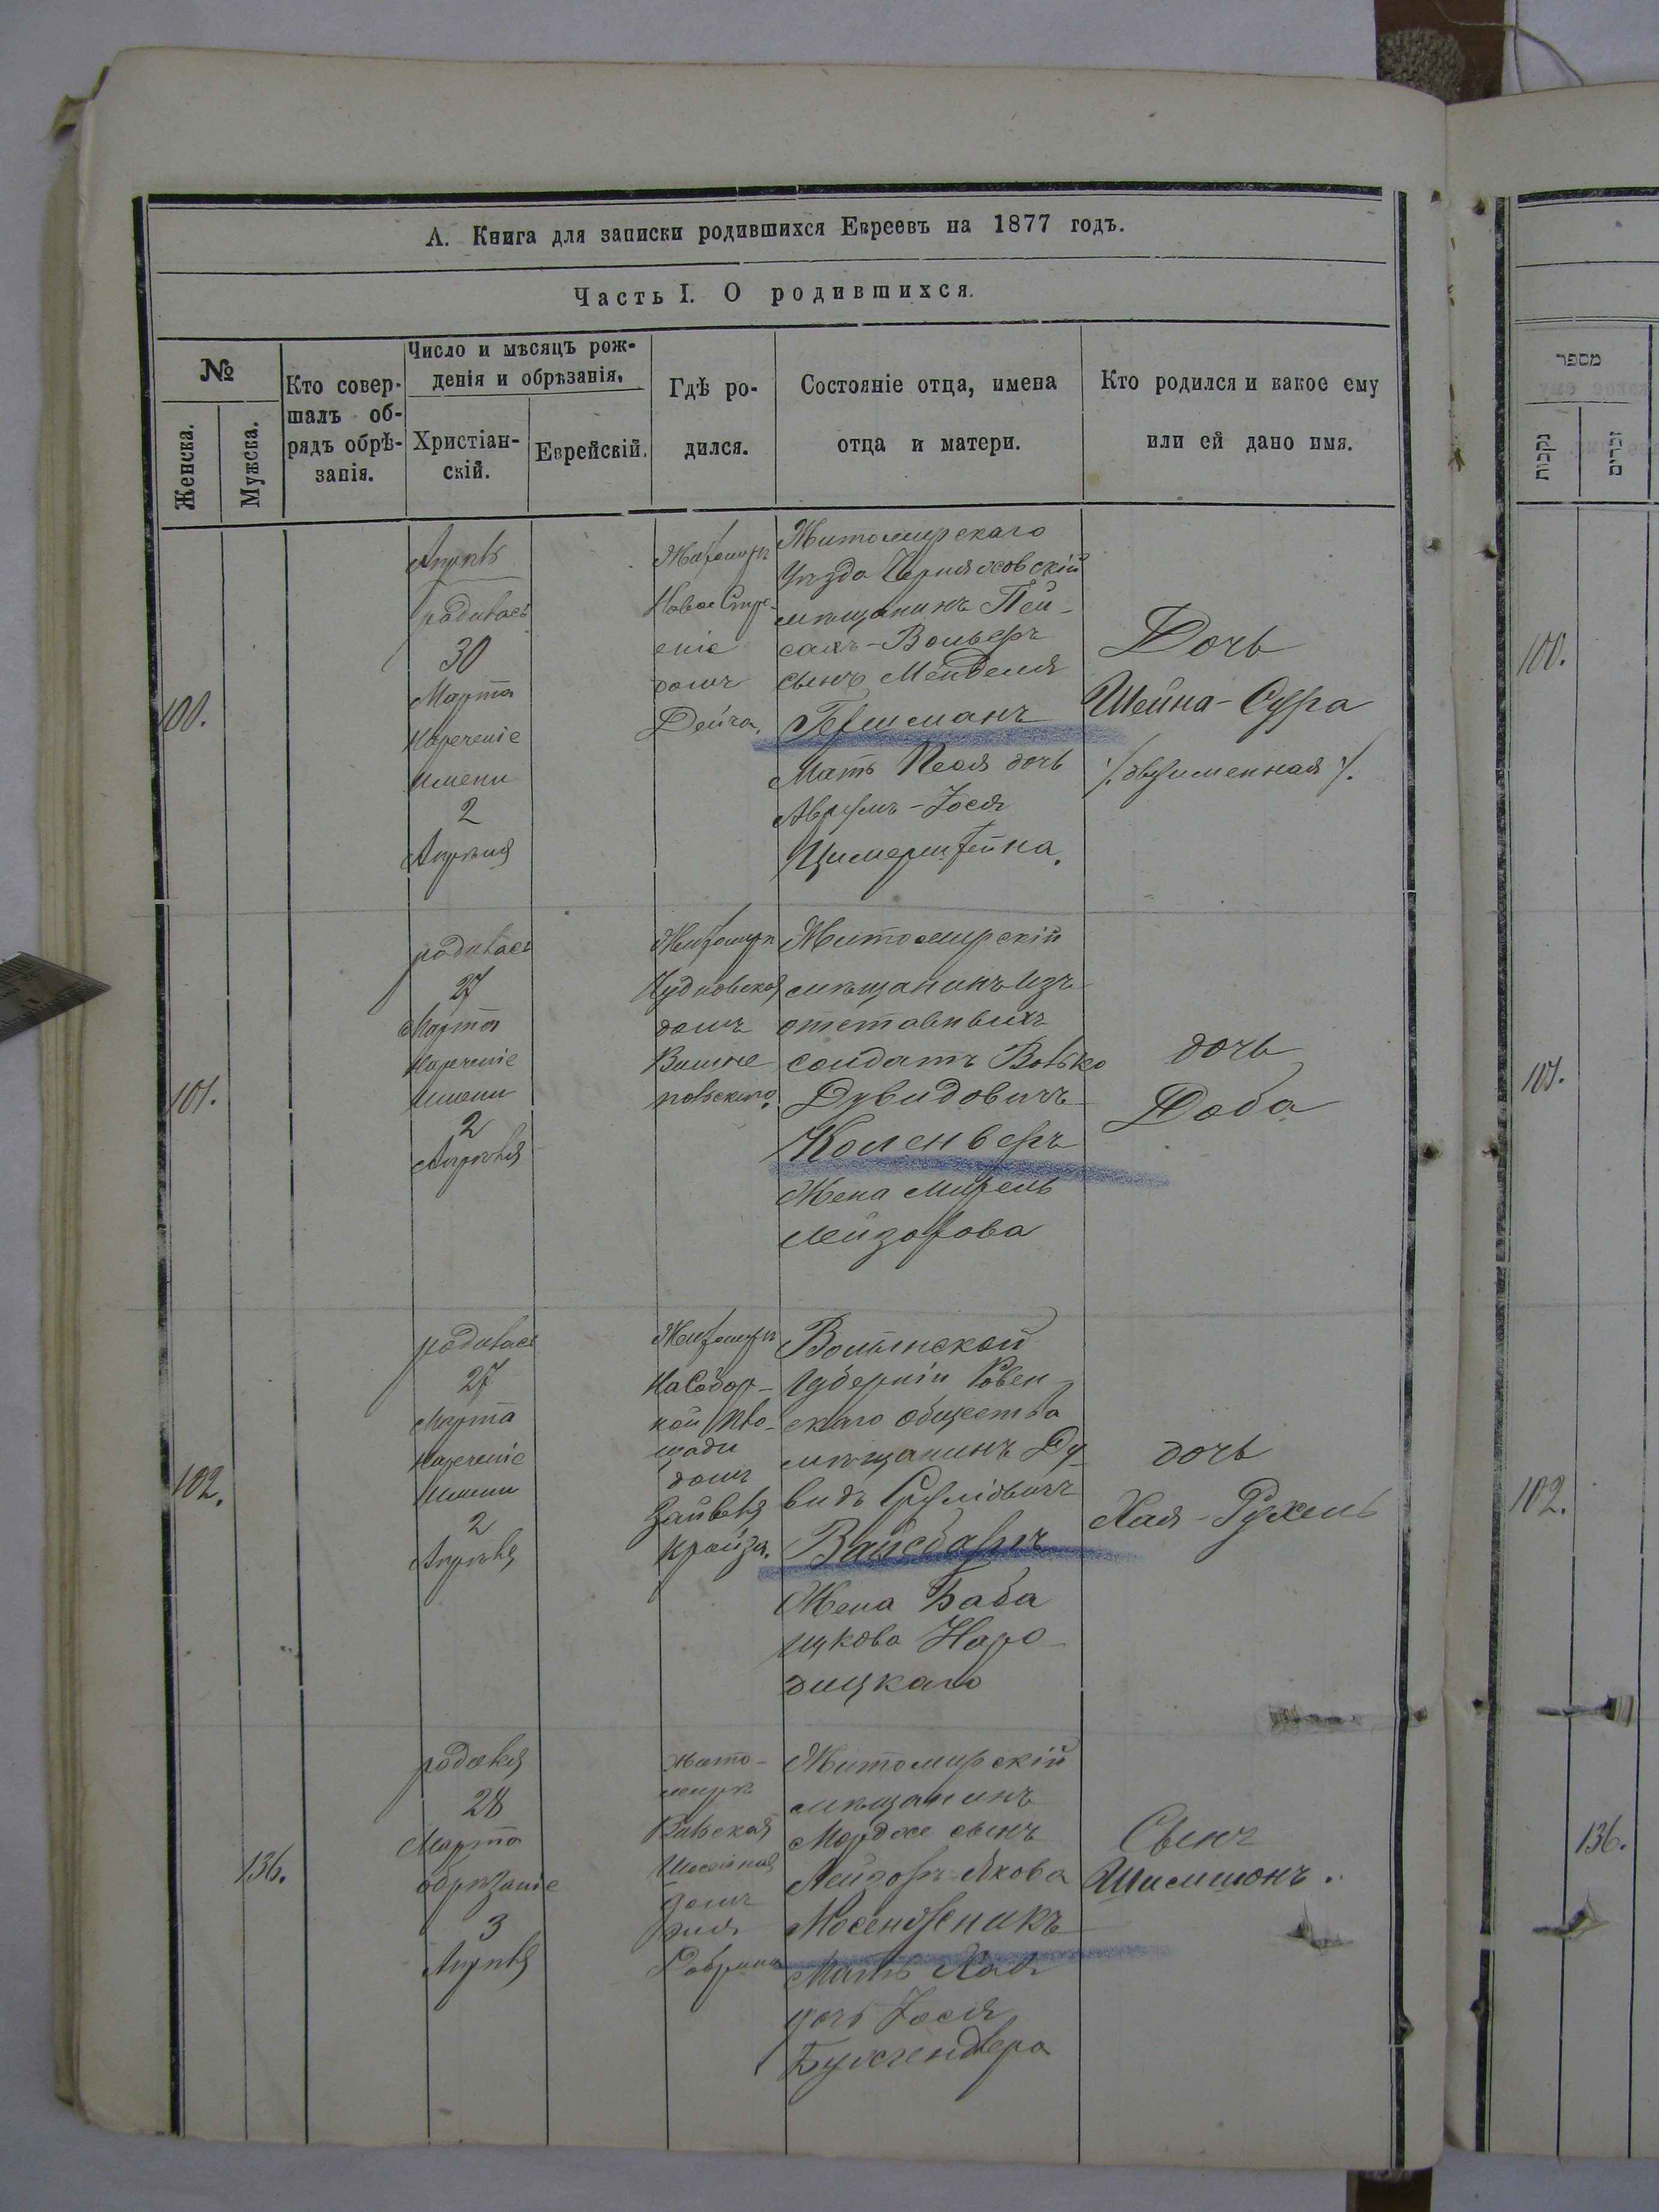 А. Книга для записки родившихся Евреевъ на 1877 годъ.
Часть I. О родившихся.
№
Женска.
Мужска.
Кто совер-
шалъ об-
рядъ обрѣ-
занія.
Число и мѣсяцъ рож-
денія и обрѣзанія.
Христіан-
скій.
Еврейскій.
Гдѣ ро-
дился.
Состояніе отца, имена
отца и матери.
Кто родился и какое ему
или ей дано имя.
100.
Апрѣль
родилась
30
Марта
Нареченіе
Имени
2
Апрѣля
Житомиръ
Новое Строе-
ніе
домъ
Дейча.
Житомирскаго
Уѣзда Черняховскій
мѣщанинъ Пей-
сахъ-Вольфъ
сынъ Менделя
Гершманъ
Мать Песя дочь
Аврумъ-Іося
Цимерштейна.
Дочь
Шейна-Сура
/. двуименная ./
101.
родилась
27
Марта
Нареченіе
Имени
2
Апрѣля
Житомиръ
Чудновская
домъ
Житомирскій
мѣщанинъ изъ
отставныхъ
солдатъ Волько
Дувидовичъ
Коленверъ
Жена Мирель
Лейзорова
дочь
Доба
102.
родилась
27
Марта
Нареченіе
Имени
2
Апрѣля
Житомиръ
На Собор-
ной Пло-
щади
домъ
Зайвеля
Крайза.
Волынской
Губерніи Ровен-
скаго общества
мѣщанинъ Ду-
видъ Срулiовичъ
Вайсбаргъ
Жена Баба
Ицкова Наро-
дицкаго
дочь
Хая-Рухель
136.
родился
28
Марта
обрѣзаніе
3
Апрѣля
Жито-
миръ
Вильская
домъ
Житомирскій
мѣщанинъ
Мордхе сынъ
Лейзоръ-Якова
Мосендзникъ
Мать Хая
дочь Іося
Сынъ
Шимшонъ.
מספר
נקבות
זכרים
100.
101.
102.
136.